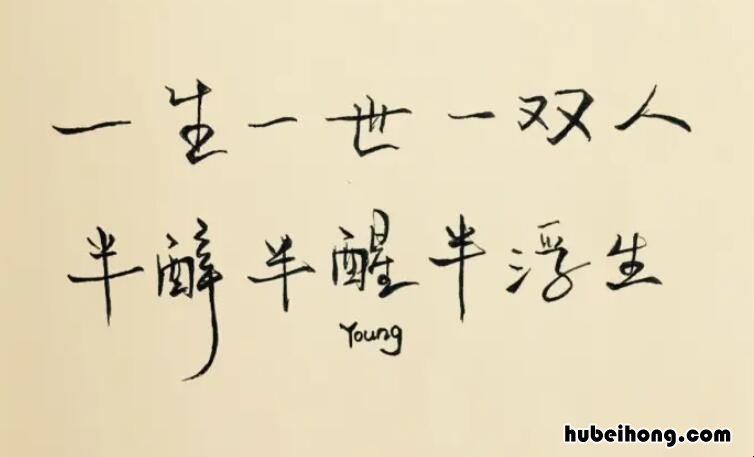 一生一世一双人
半醉半醒半浮生
Young
hubeihong.com